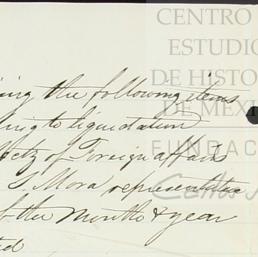 CENTRO
ESTUDIO
DE HISTO
DE MEXI
FUNDAC
ing the following items
ing to liquidation
of Foreign affairs
S Mora representative
the Month & year